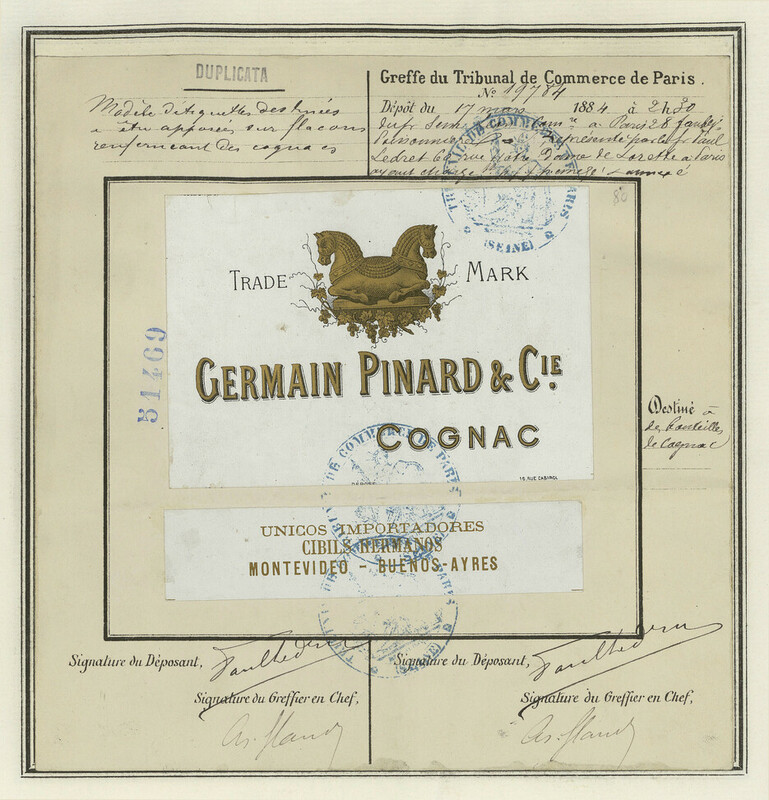 DUPLICATA
Modèle d'étiquettes destinées
à être apposées sur flacons
renfermant des cognacs
Greffe du Tribunal de Commerce de Paris.
N° 19784
Dépôt du 17 mars 1884 à 2h30
à Paris 28 faubg
Poissonnière représenté par le sr Paul
Ledret 60 rue Notre Dame de Lorette à Paris
TRIBUNAL DE COMMERCE DE PARIS
(SEINE)
80
TRADE MARK
51469
GERMAIN PINARD & CIE.
COGNAC
Destiné à
des bouteilles
de Cognac
19, RUE CABIROL
TRIBUNAL DE COMMERCE DE PARIS
UNICOS IMPORTADORES
CIBILS HERMANOS
MONTEVIDEO - BUENOS-AYRES
TRIBUNAL DE COMMERCE DE PARIS
(SEINE)
Signature du Déposant,
Signature du Déposant,
Signature du Greffier en Chef,
Signature du Greffier en Chef,